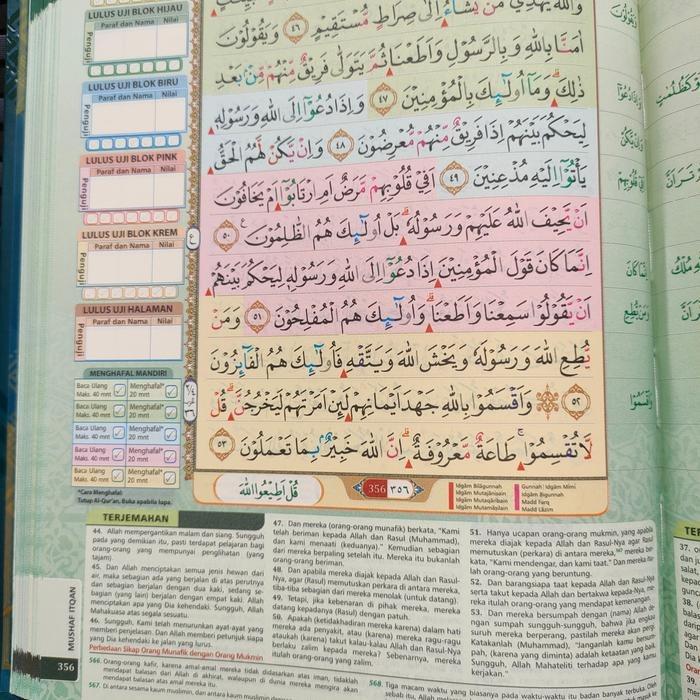 LULUS UJI BLOK HIJAU
Paraf dan Nama
Nilai
Penguji
LULUS UJI BLOK BIRU
Paraf dan Nama
Nilai
Penguji
LULUS UJI BLOK PINK
Paraf dan Nama
Nilai
Penguji
LULUS UJI BLOK KREM
Paraf dan Nama
Nilai
Penguji
LULUS UJI HALAMAN
Paraf dan Nama
Nilai
Penguji
MENGHAFAL MANDIRI
Baca Ulang Menghafal*
Maks. 40 mnt 20 mnt
Baca Ulang Menghafal*
Maks. 40 mnt 20 mnt
Baca Ulang Menghafal*
Maks. 40 mnt 20 mnt
Baca Ulang Menghafal*
Maks. 40 mnt 20 mnt
Baca Ulang Menghafal*
Maks. 40 mnt 20 mnt
*Cara Menghafal:
Tutup Al-Qur'an, Buka apabila lupa.
وَاللّٰهُ يَهْدِيْ مَنْ يَّشَاۤءُ اِلٰى صِرَاطٍ مُّسْتَقِيْمٍ ٤٦ وَيَقُوْلُوْنَ
اٰمَنَّا بِاللّٰهِ وَبِالرَّسُوْلِ وَاَطَعْنَا ثُمَّ يَتَوَلّٰى فَرِيْقٌ مِّنْهُمْ مِّنْۢ بَعْدِ
ذٰلِكَۗ وَمَآ اُولٰۤىِٕكَ بِالْمُؤْمِنِيْنَ ٤٧ وَاِذَا دُعُوْٓا اِلَى اللّٰهِ وَرَسُوْلِهٖ
لِيَحْكُمَ بَيْنَهُمْ اِذَا فَرِيْقٌ مِّنْهُمْ مُّعْرِضُوْنَ ٤٨ وَاِنْ يَّكُنْ لَّهُمُ الْحَقُّ
يَأْتُوْٓا اِلَيْهِ مُذْعِنِيْنَ ٤٩ اَفِيْ قُلُوْبِهِمْ مَّرَضٌ اَمِ ارْتَابُوْٓا اَمْ يَخَافُوْنَ
اَنْ يَّحِيْفَ اللّٰهُ عَلَيْهِمْ وَرَسُوْلُهٗۗ بَلْ اُولٰۤىِٕكَ هُمُ الظّٰلِمُوْنَ ٥٠
اِنَّمَا كَانَ قَوْلَ الْمُؤْمِنِيْنَ اِذَا دُعُوْٓا اِلَى اللّٰهِ وَرَسُوْلِهٖ لِيَحْكُمَ بَيْنَهُمْ
اَنْ يَّقُوْلُوْا سَمِعْنَا وَاَطَعْنَاۗ وَاُولٰۤىِٕكَ هُمُ الْمُفْلِحُوْنَ ٥١ وَمَنْ
يُّطِعِ اللّٰهَ وَرَسُوْلَهٗ وَيَخْشَ اللّٰهَ وَيَتَّقْهِ فَاُولٰۤىِٕكَ هُمُ الْفَاۤىِٕزُوْنَ
٥٢ وَاَقْسَمُوْا بِاللّٰهِ جَهْدَ اَيْمَانِهِمْ لَىِٕنْ اَمَرْتَهُمْ لَيَخْرُجُنَّۗ قُلْ
لَّا تُقْسِمُوْاۚ طَاعَةٌ مَّعْرُوْفَةٌۗ اِنَّ اللّٰهَ خَبِيْرٌۢ بِمَا تَعْمَلُوْنَ ٥٣
قُلْ اَطِيْعُوا اللّٰهَ
356 ٣٥٦
Idgām Bilāgunnah
Idgām Mutajānisain
Idgām Mutaqāribain
Idgām Mutamāṡilain
Gunnah Idgām Mīmi
Idgām Bigunnah
Madd Farq
Madd Lāzim
TERJEMAHAN
44. Allah mempergantikan malam dan siang. Sungguh
pada yang demikian itu, pasti terdapat pelajaran bagi
orang-orang yang mempunyai penglihatan (yang
tajam)
45. Dan Allah menciptakan semua jenis hewan dari
air, maka sebagian ada yang berjalan di atas perutnya
dan sebagian berjalan dengan dua kaki, sedang se-
bagian (yang lain) berjalan dengan empat kaki. Allah
menciptakan apa yang Dia kehendaki. Sungguh, Allah
Mahakuasa atas segala sesuatu.
46. Sungguh, Kami telah menurunkan ayat-ayat yang
memberi penjelasan. Dan Allah memberi petunjuk siapa
yang Dia kehendaki ke jalan yang lurus.
Perbedaan Sikap Orang Munafik dengan Orang Mukmin
47. Dan mereka (orang-orang munafik) berkata, "Kami
telah beriman kepada Allah dan Rasul (Muhammad),
dan kami menaati (keduanya)." Kemudian sebagian
dari mereka berpaling setelah itu. Mereka itu bukanlah
orang-orang beriman.
48. Dan apabila mereka diajak kepada Allah dan Rasul-
Nya, agar (Rasul) memutuskan perkara di antara mereka,
tiba-tiba sebagian dari mereka menolak (untuk datang).
49. Tetapi, jika kebenaran di pihak mereka, mereka
datang kepadanya (Rasul) dengan patuh.
50. Apakah (ketidakhadiran mereka karena) dalam hati
mereka ada penyakit, atau (karena) mereka ragu-ragu
ataukah (karena) takut kalau-kalau Allah dan Rasul-Nya
berlaku zalim kepada mereka? Sebenarnya, mereka
itulah orang-orang yang zalim.
51. Hanya ucapan orang-orang mukmin, yang apabila
mereka diajak kepada Allah dan Rasul-Nya agar Rasul
memutuskan (perkara) di antara mereka, mereka ber-
kata, "Kami mendengar, dan kami taat." Dan mereka itu-
lah orang-orang yang beruntung.
52. Dan barangsiapa taat kepada Allah dan Rasul-Nya
serta takut kepada Allah dan bertakwa kepada-Nya, me-
reka itulah orang-orang yang mendapat kemenangan.
53. Dan mereka bersumpah dengan (nama) Allah de-
ngan sumpah sungguh-sungguh, bahwa jika engkau
suruh mereka berperang, pastilah mereka akan pergi.
Katakanlah (Muhammad), "Janganlah kamu bersum-
pah, (karena yang diminta) adalah ketaatan yang baik.
Sungguh, Allah Mahateliti terhadap apa yang kamu
kerjakan."
566. Orang-orang kafir, karena amal-amal mereka tidak didasarkan atas iman, tidaklah
mendapat balasan dari Allah di akhirat, walaupun di dunia mereka mengira akan
mendapat balasan atas amal mereka itu.
MUSHAF ITQAN
356